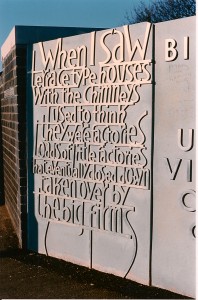 When I Saw
terrace type houses
With the Chimneys
I used to think
they were factories
loads of little factories
that eventually closed down
taken over by
the big firms
BI
U
VI
C